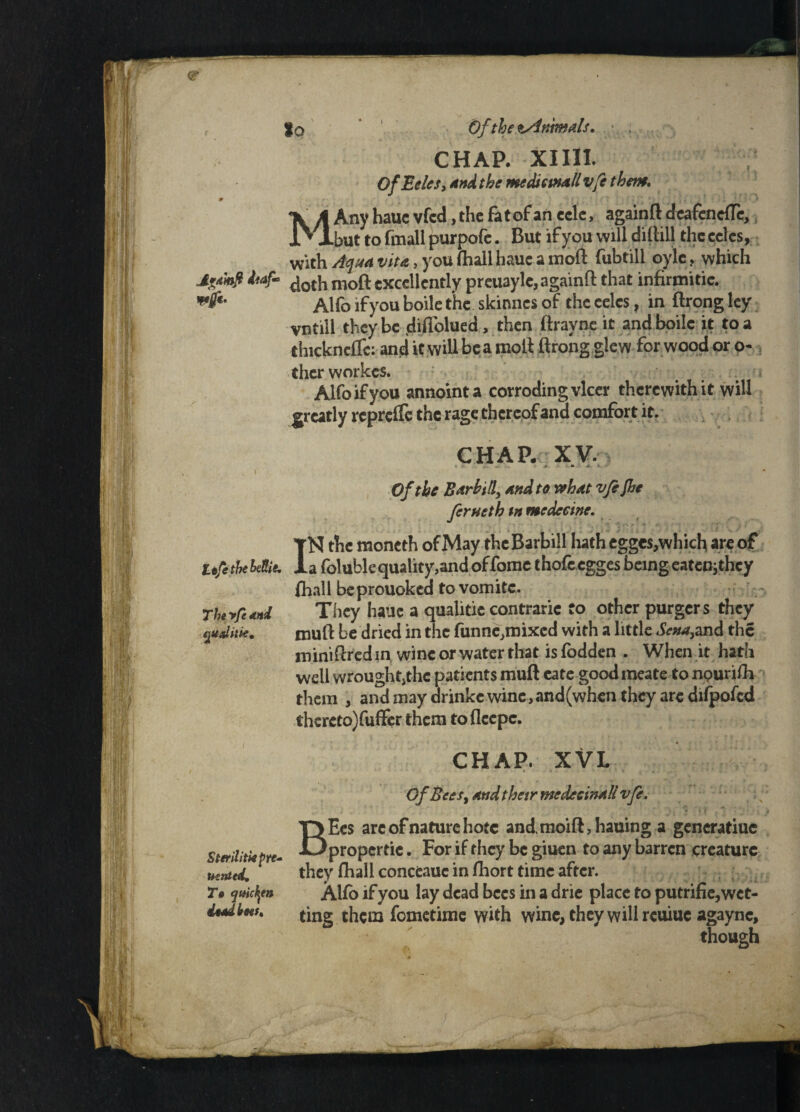 10 Of the Animals.
CHAP. XIIII.
Of Eeles, and the medicinall vſe them.
MAny haue vſed, the fat of an eele, againſt deafeneſſe,
but to ſmall purpoſe. But if you will diſtill the eeles,
with Aqua vitæ, you ſhall haue a moſt ſubtill oyle, which
Againſt deaf-
neſſe.
doth moſt excellently preuayle, againſt that infirmitie.
Alſo if you boile the skinnes of the eeles, in ſtrong ley
vntill they be diſſolued, then ſtrayne it and boile it to a
thickneſſe: and it will be a moſt ſtrong glew for wood or o-
ther workes.
Alſo if you annoint a corroding vlcer therewith it will
greatly repreſſe the rage thereof and comfort it.
CHAP. XV.
Of the Barbill, and to what vſe ſhe
ſerueth in medecine.
IN the moneth of May the Barbill hath egges, which are of
Loſe the bellie.
a ſoluble quality, and of ſome thoſe egges being eaten; they
ſhall be prouoked to vomite.
The vſe and
qualitie.
They haue a qualitie contrarie to other purgers they
muſt be dried in the ſunne, mixed with a little Sena, and the
miniſtred in wine or water that is ſodden. When it hath
well wrought, the patients muſt eate good meate to nouriſh
them, and may drinke wine, and (when they are diſpoſed
thereto) ſuffer them to ſleepe.
CHAP. XVI.
Of Bees, and their medecinall vſe.
BEes are of nature hote and moiſt, hauing a generatiue
Sterilitie pre-
uented.
propertie. For if they be giuen to any barren creature
they ſhall conceaue in ſhort time after.
To quicken
dead bees.
Alſo if you lay dead bees in a drie place to putrifie, wet-
ting them ſometime with wine, they will reuiue agayne,
though